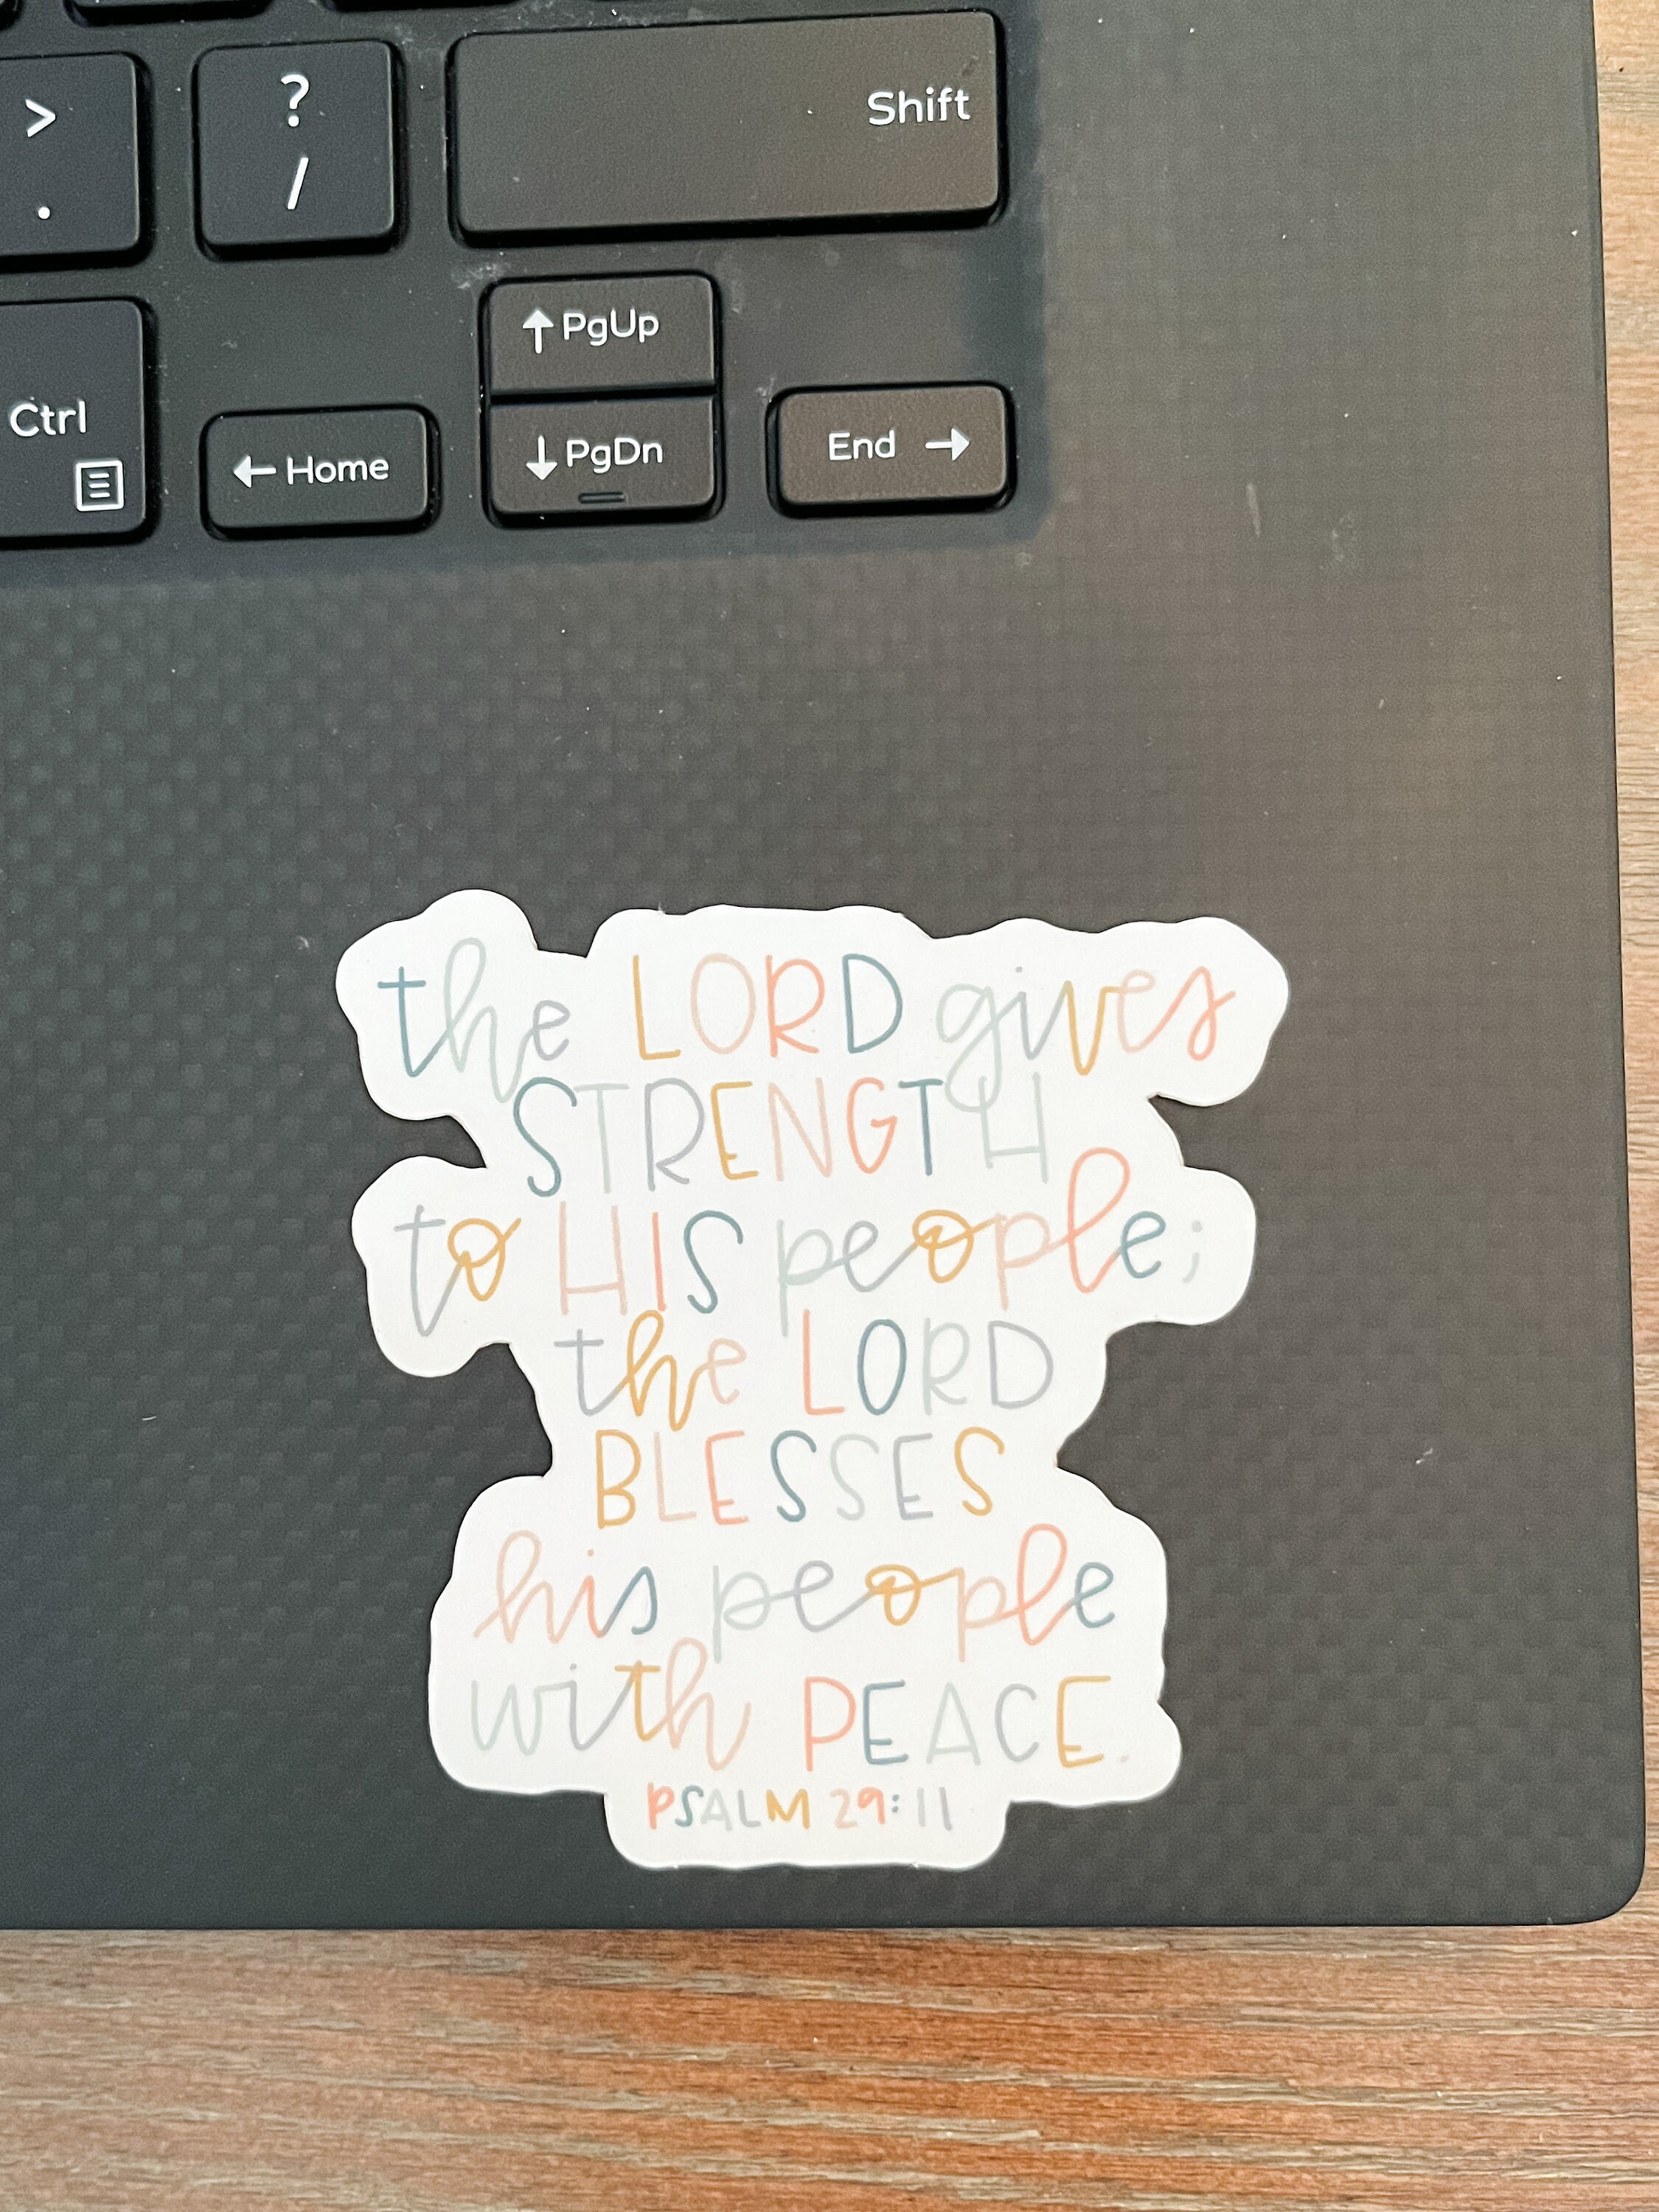 >
.
?
/
Shift
↑ PgUp
Ctrl
← Home
↓ PgDn
End →
the LORD gives
STRENGTH
to HIS people;
the LORD
BLESSES
his people
with PEACE.
PSALM 29:11